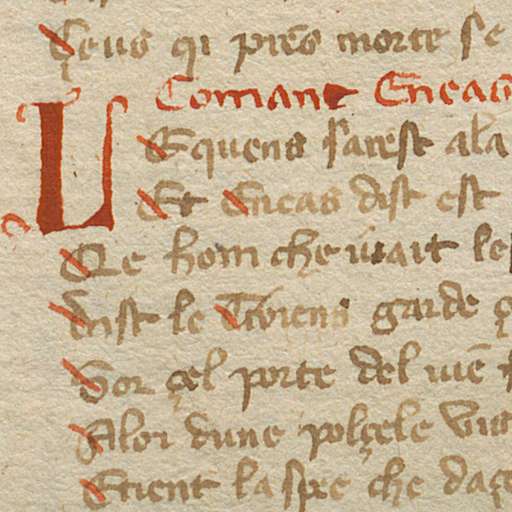 Çeus qi prēs morte se
Comant Eneas
L Equens s'arest a la
Et Eneas dist est
Qe hom che vait le
dist le Troiens garde
Sor çel porte del uiē
Alor dune polçele
Etient la spee che daçe